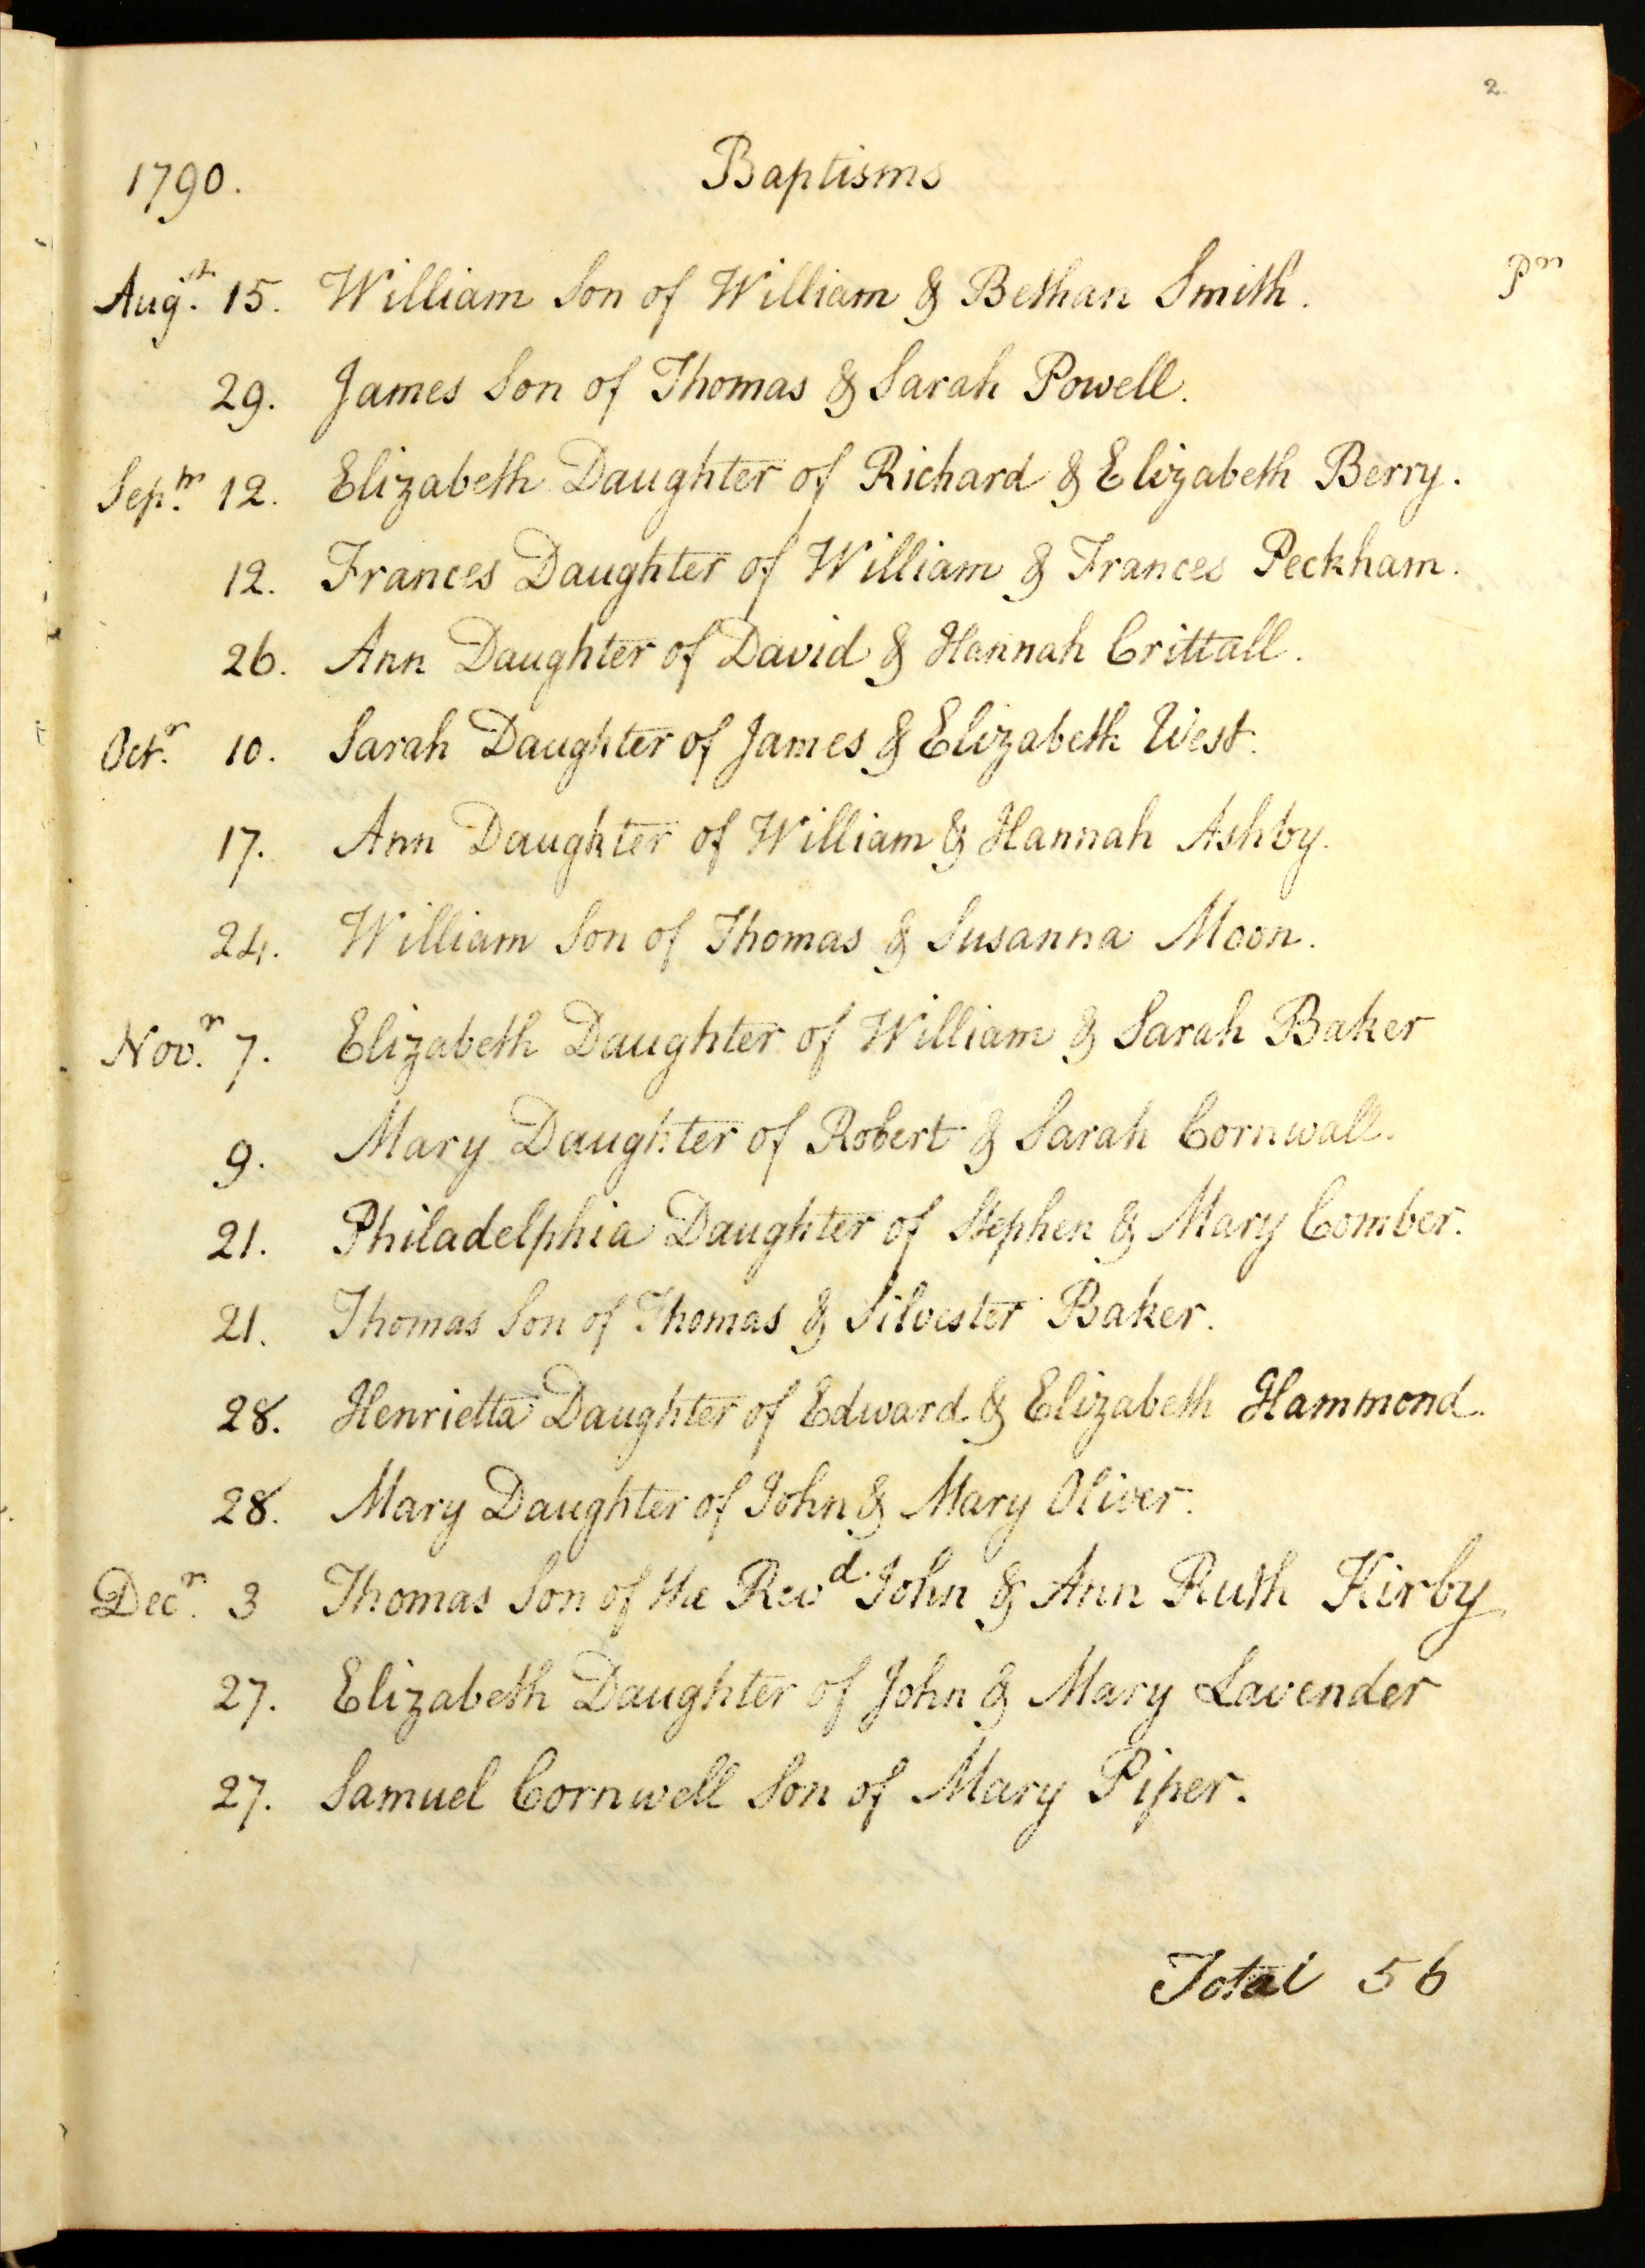 2.
1790. Baptisms
Augst. 15. William Son of William & Bethan Smith. Pm
29. James Son of Thomas & Sarah Powell.
Sepr. 12. Elizabeth Daughter of Richard & Elizabeth Berry.
12. Frances Daughter of William & Frances Peckham.
26. Ann Daughter of David & Hannah Crittall.
Octr. 10. Sarah Daughter of James & Elizabeth West.
17. Ann Daughter of William & Hannah Ashby.
24. William Son of Thomas & Susanna Moon.
Novr. 7. Elizabeth Daughter of William & Sarah Baker
9. Mary Daughter of Robert & Sarah Cornwall.
21. Philadelphia Daughter of Stephen & Mary Comber.
21. Thomas Son of Thomas & Silvester Baker.
28. Henrietta Daughter of Edward & Elizabeth Hammond.
28. Mary Daughter of John & Mary Oliver.
Decr. 3 Thomas Son of the Revd. John & Ann Ruth Kirby
27. Elizabeth Daughter of John & Mary Lavender
27. Samuel Cornwell Son of Mary Piper.
Total 56